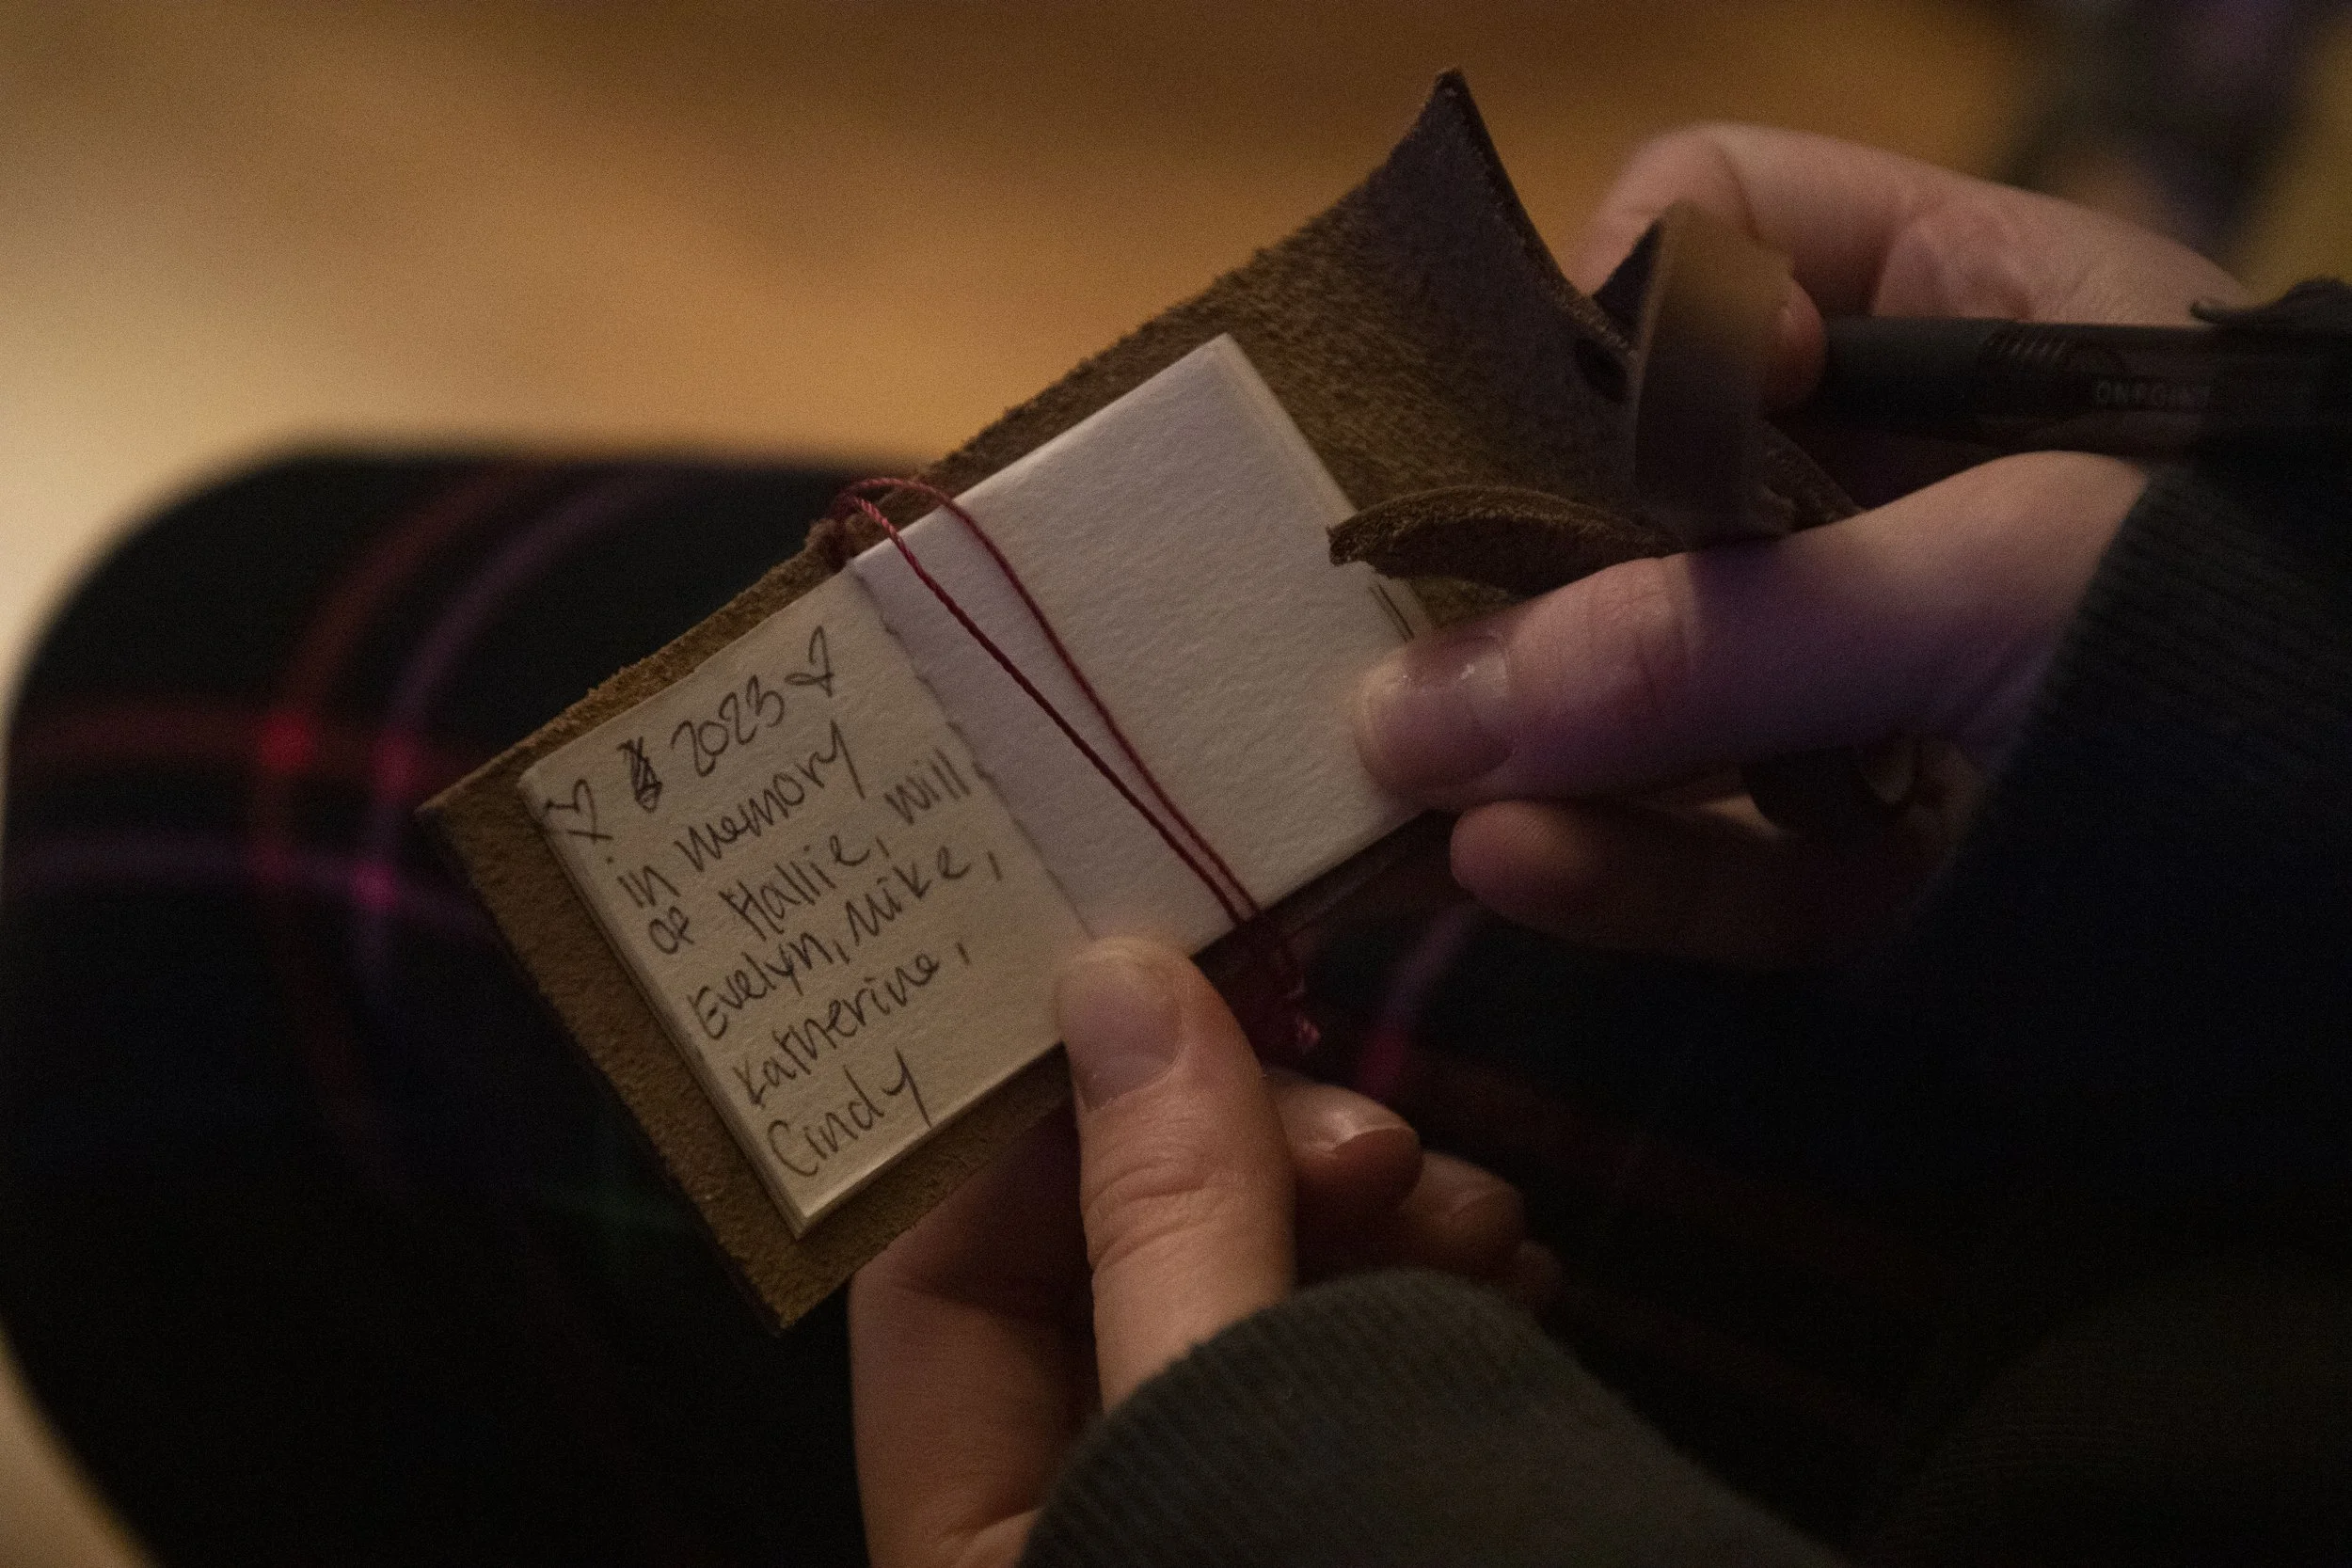 2023
in memory
of Hallie, Will
Evelyn, Mike,
Katherine,
Cindy
ONPOINT